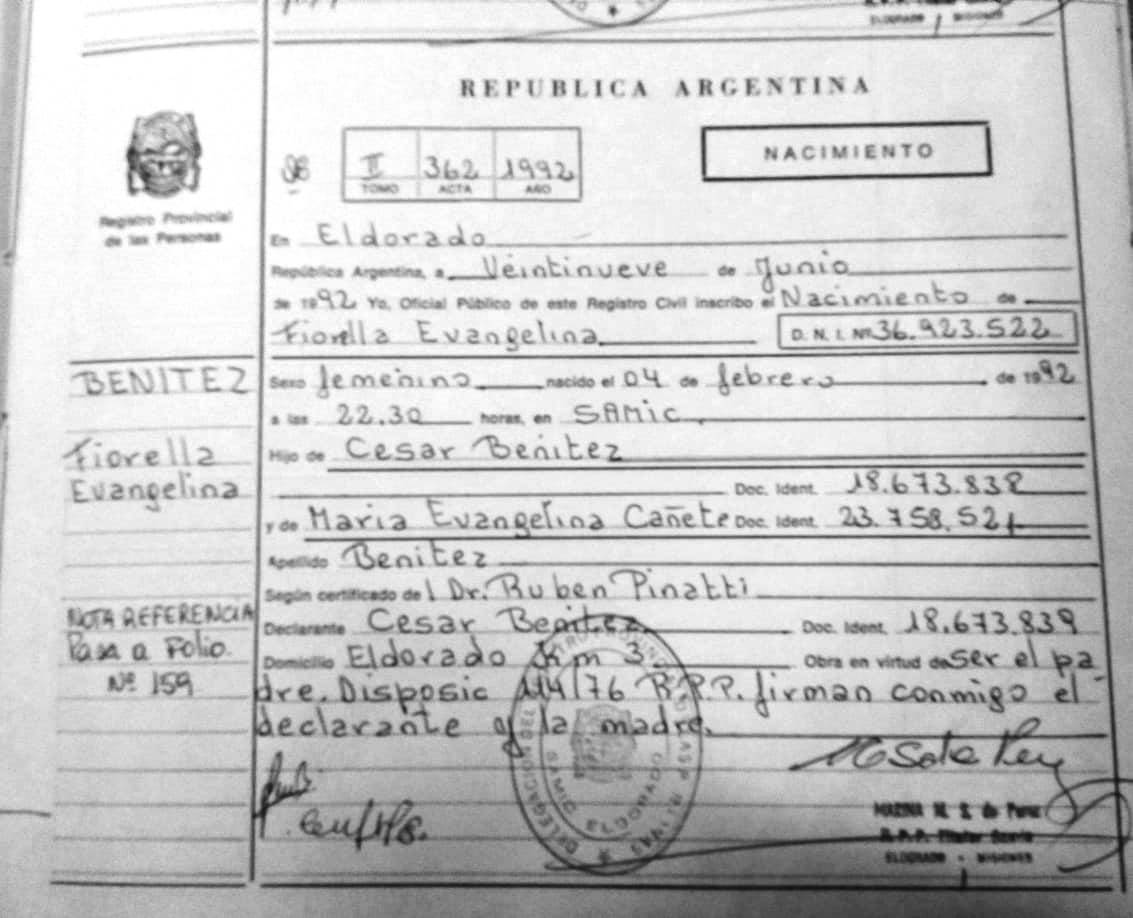 ELDORADO MISIONES
REPUBLICA ARGENTINA
II 362 1992
TOMO ACTA AÑO
NACIMIENTO
Registro Provincial
de las Personas
En Eldorado
República Argentina, a Veintinueve de Junio
de 1992 Yo, Oficial Público de este Registro Civil inscribo el Nacimiento de
Fiorella Evangelina D. N. I. Nº 36.923.522
BENITEZ
Sexo femenino nacido el 04 de febrero de 1992
a las 22.30 horas, en SAMIC.
Fiorella
Evangelina
Hijo de Cesar Benitez
Doc. Ident. 18.673.839
y de Maria Evangelina Cañete Doc. Ident. 23.758.521
Apellido Benitez
Según certificado de Dr. Ruben Pinatti
NOTA REFERENCIA
Pasa a Folio.
Nº 159
Declarante Cesar Benitez Doc. Ident. 18.673.839
Domicilio Eldorado Km 3 Obra en virtud de ser el pa
dre. Disposic 114/76 R.P.P. firman conmigo el
declarante y la madre.
DELEGACION DEL
SAMIC ELDORADO
MARINA M. S. de Perez
ELDORADO - MISIONES